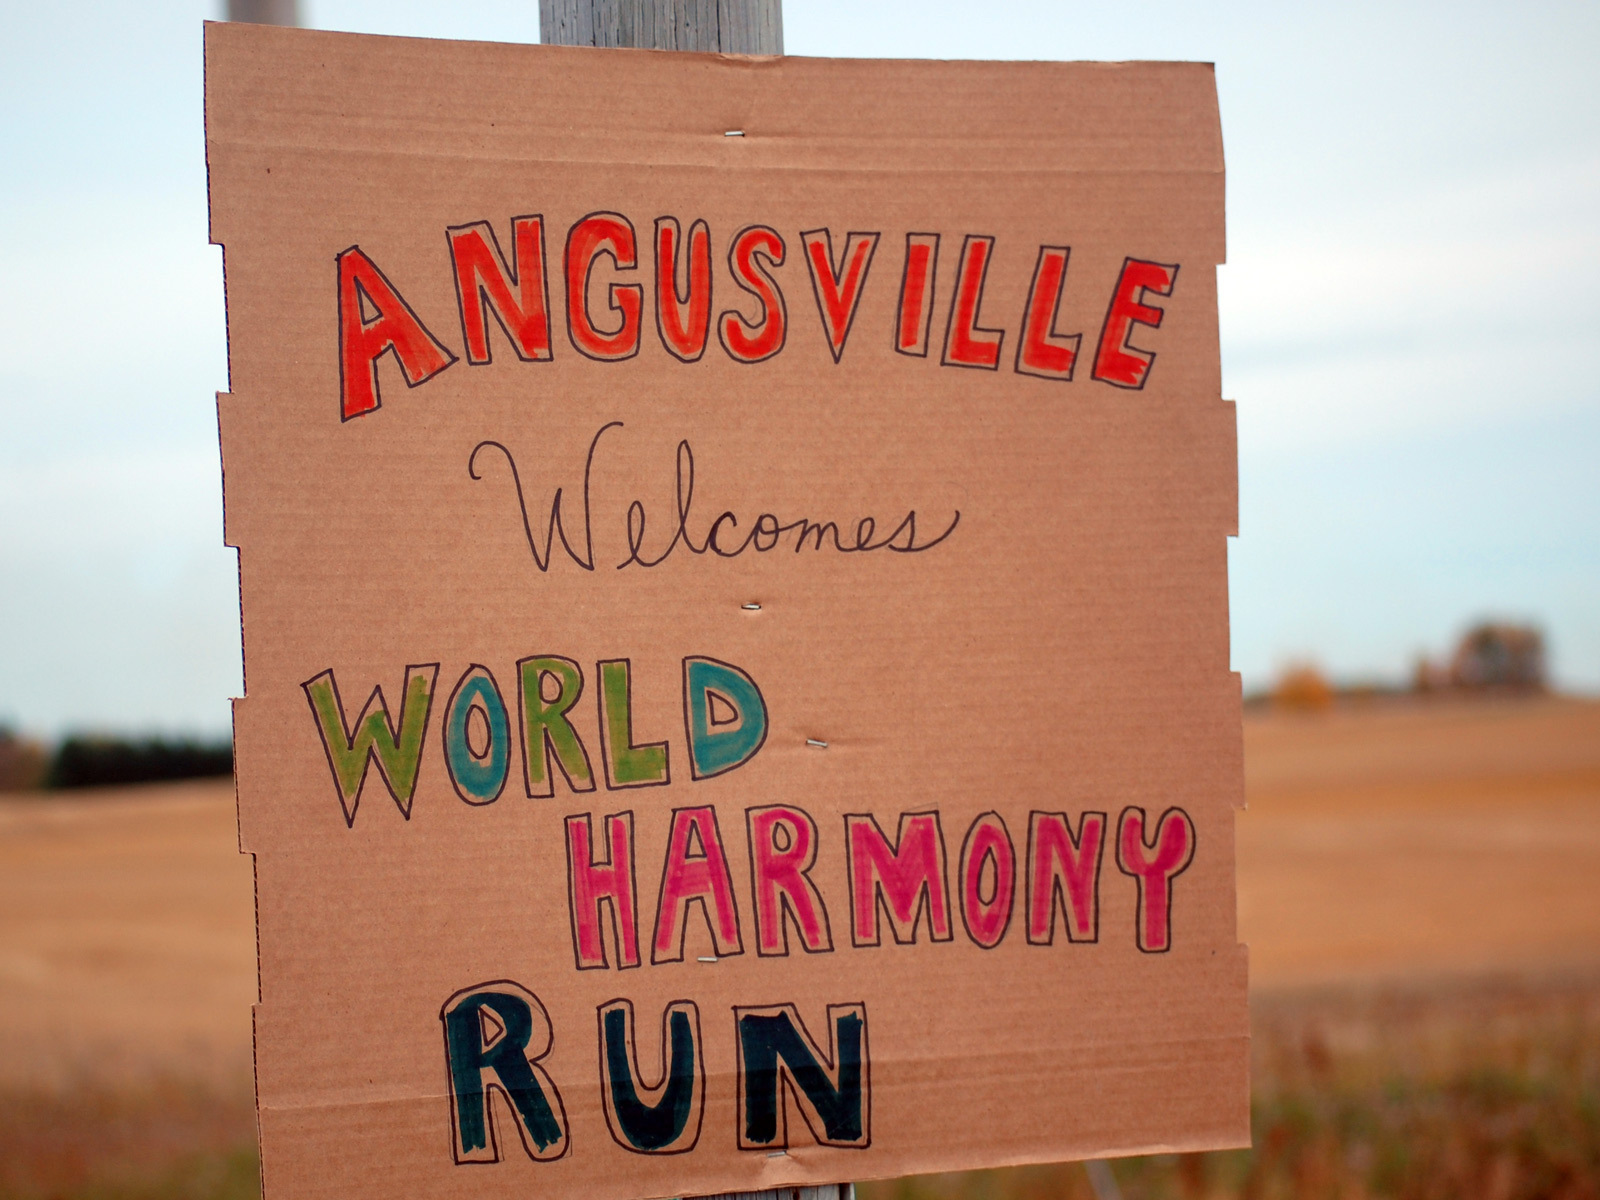 ANGUSVILLE
Welcomes
WORLD
HARMONY
RUN